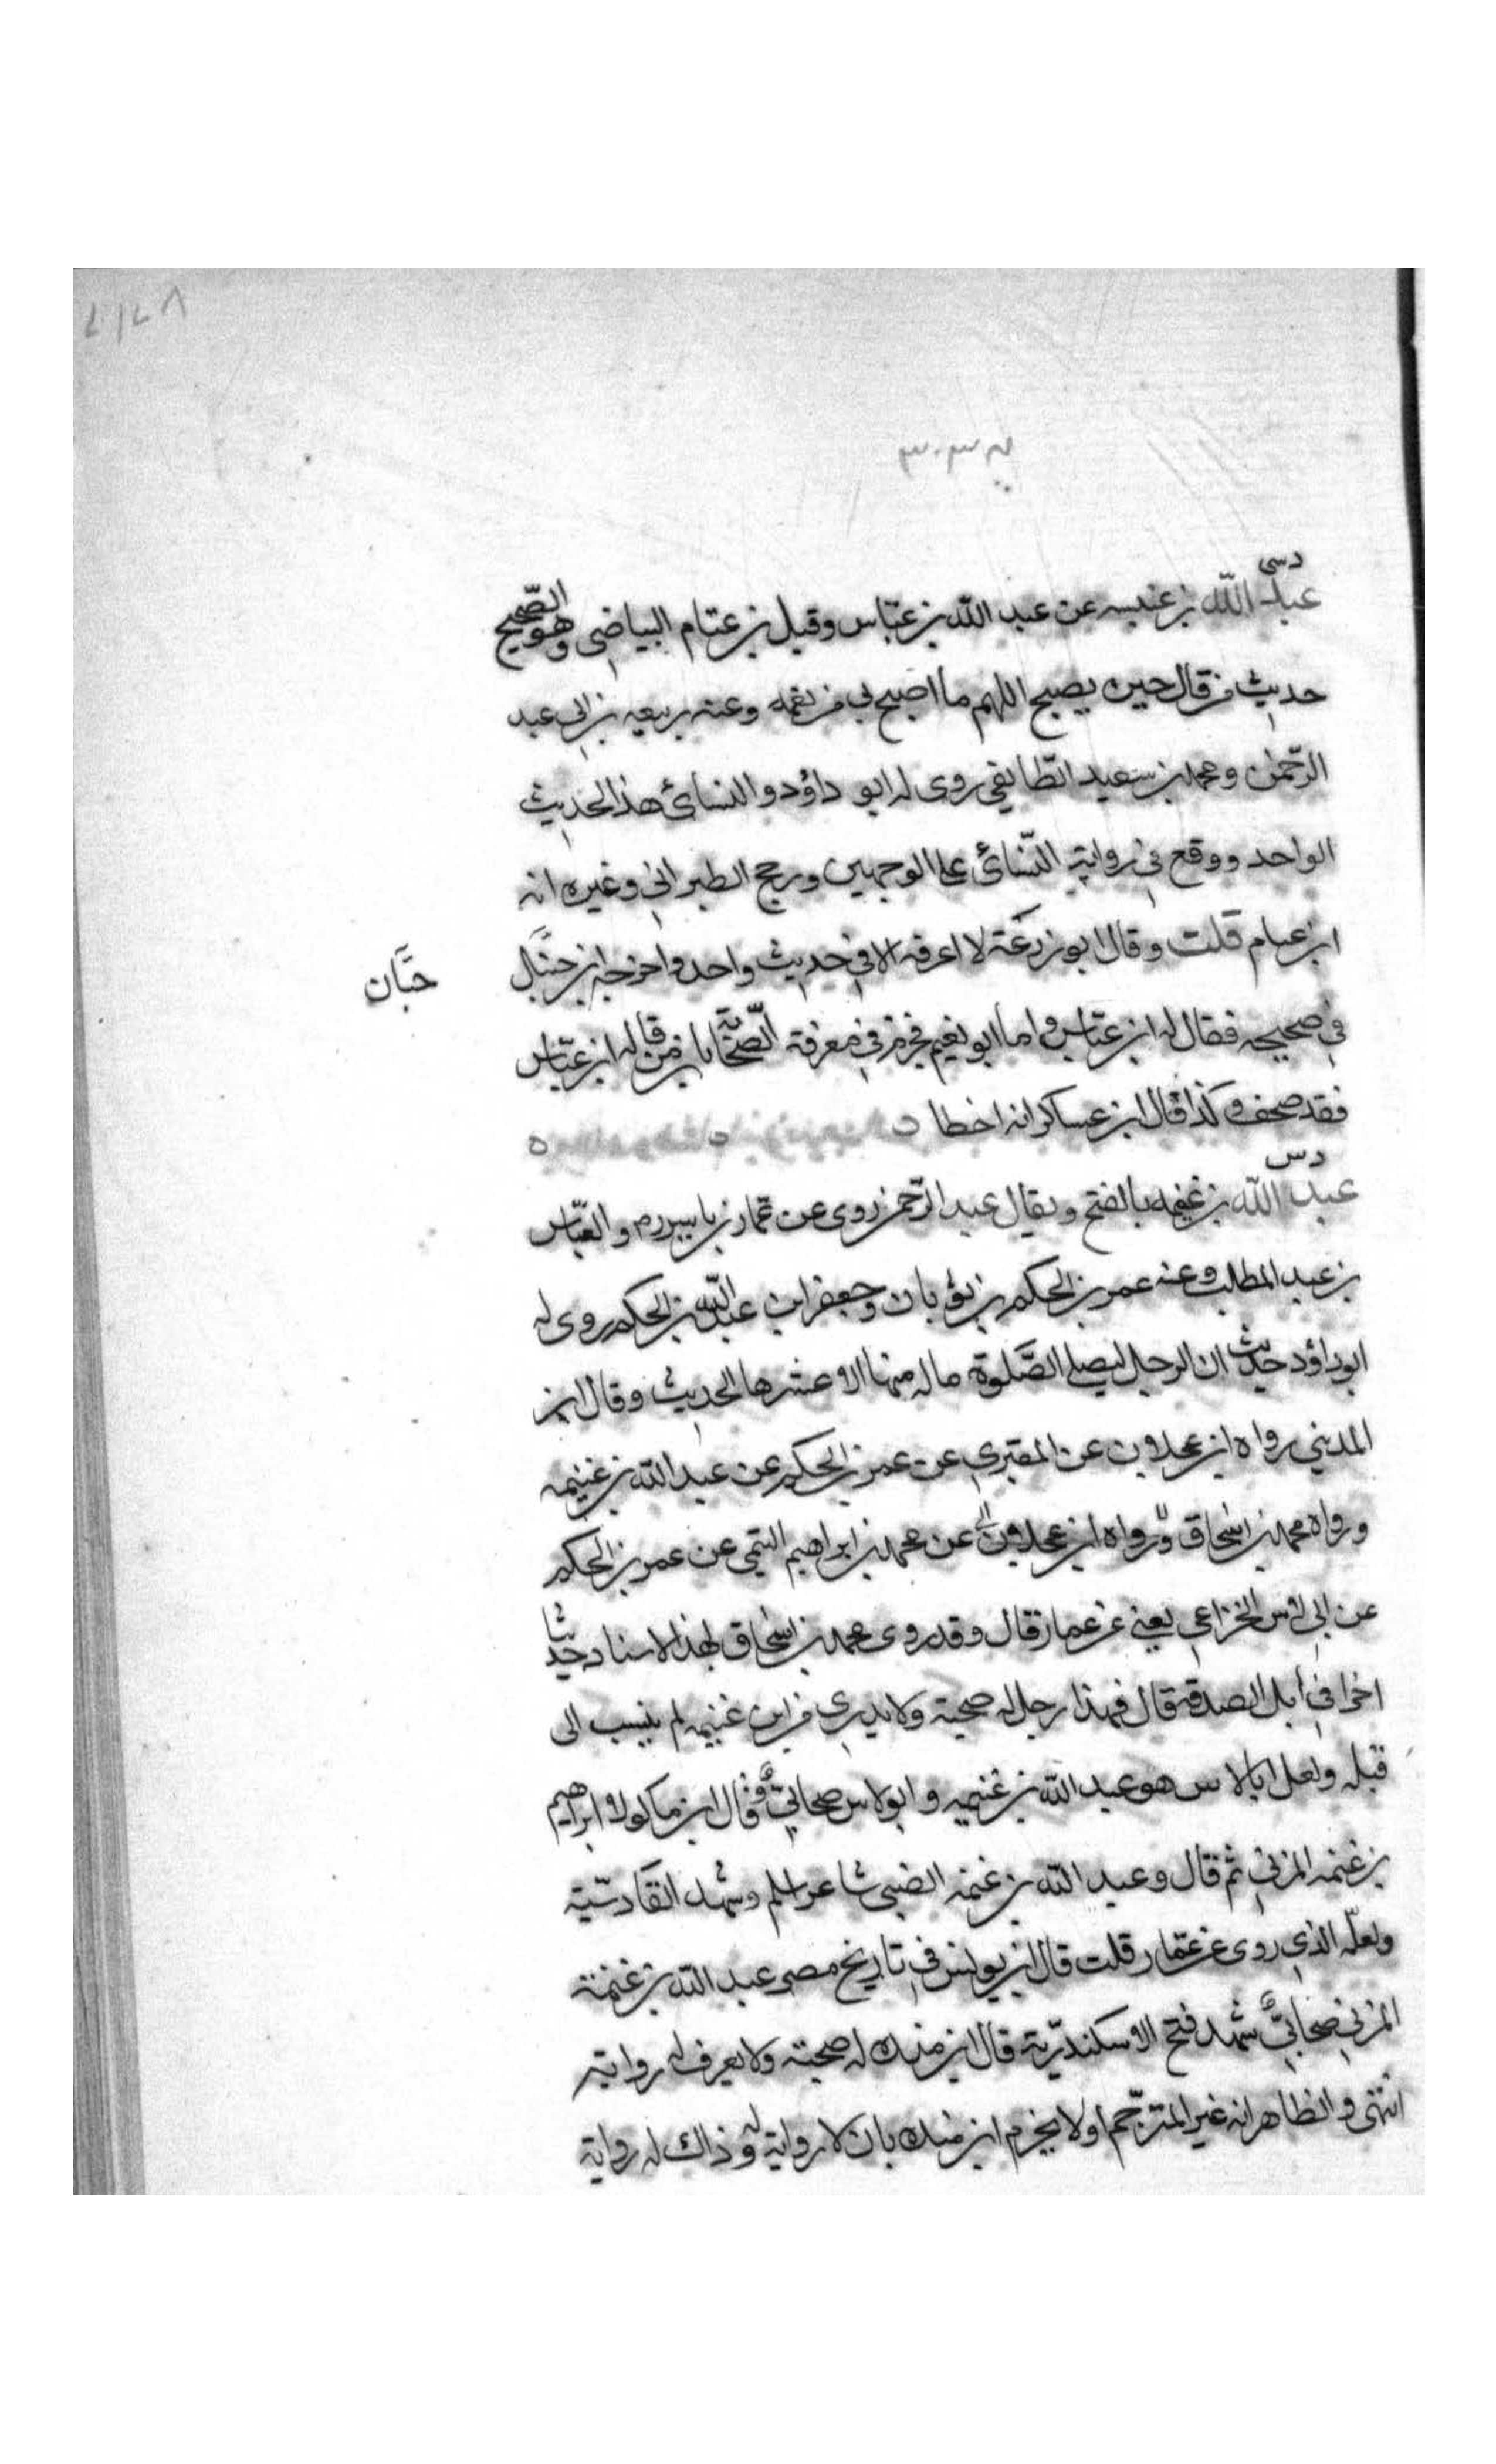 دسی
عبد الله بن عنبسه عن عبد الله بن عبّاس وقيل بن عنام البياضي وهو الصّحيح
حديث من قال حين يصبح اللهم ما اصبح بى من نعمه وعنه ربيعه بن ابى عبد
الرّحمٰن ومحمد بن سعيد الطّايفي روى له ابو داؤد والنسائ هذا الحديث
الواحد ووقع في رواية النّسائ على الوجهين ورجح الطبرانى وغيره انه
ابن عنام قلت وقال ابو زرعة لا اعرفه الا فى حديث واحد واخرجه ابن حنبل
حبَّان
في صحيحه فقال له ابن عبّاس واما ابو نعيم فجزم فى معرفة الصّحابة بان من قاله ابن عبّاس
فقد صحف وكذا قال ابن عساكر انه اخطا
دس
عبد الله بن غنمه بالفتح ويقال عبد الرّحمن روى عن عمّار بن ياسر رم والعبّاس
بن عبد المطلب وعنه عمر بن الحكم بن ثوبان وجعفر ابن عبد الله بن الحكم روى له
ابو داؤد حديث ان الرجل ليصلى الصَّلوة ماله منها الا عشرها الحديث وقال ابن
المديني رواه ابن عجلان عن المقبري عن عمر بن الحكم عن عبد الله بن غنيمه
ورواه محمد بن اسحاق ورواه ابن عجلان عن محمد بن ابراهيم التيمي عن عمر بن الحكم
عن ابى لاس الخزاعي يعنى عن عمار قال وقد روى محمد بن اسحاق بهذا الاسناد حديثا
اخرا فى ابل الصدقة قال فهذا رجل له صحبة ولا يدري من ابن غنيمه لم ينسب الى
قبله ولعل ابا لاس هو عبد الله بن غنيمه وابو لاس صحابيٌّ وقال ابن ماكولا وابراهيم
بن غنمه المزني ثم قال وعبد الله بن غنمه الضبى شاعر اسلم وشهد القادسّية
ولعلّه الذي روى عن عمّار قلت قال ابن يونس فى تاريخ مصر عبد الله بن غنمة
المزني صحابيٌّ شهد فتح الاسكندريّة قال ابن منده له صحبة ولا يعرف له رواية
انتهى والظاهر انه غير المترجم اولا يجزم ابن منده بان لا رواية له وذاك له رواية